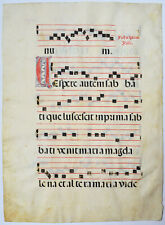 nu m.
Vespere autem sab ba
ti que lucescit inprima sab
bati venit maria magda
lena et al te ra maria vide